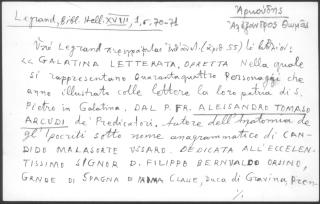 Legrand, Bibl. Hell. XVIII, 1, σ. 70-71
Ἀρκούδης
Ἀλέξανδρος Θωμᾶς
Legrand περιγράφει (ἀρ. 55) τὸ βιβλίο:
« GALATINA LETTERATA, OPRETTA Nella quale
si rappresentano Quarantaquattro Personaggi che
anno illustrato colle lettere la loro patria di S.
Pietro in Galatina. DAL P. FR. ALESSANDRO TOMASO
ARCUDI de' Predicatori. Autore dell'Anatomia de
gl'Ipocriti sotto nome anagrammatico di CAN-
DIDO MALASORTE USSARO. DEDICATA ALL'ECCELEN-
TISSIMO SIGNOR D. FILIPPO BERNUALDO ORSINO,
GRANDE DI SPAGNA DI PRIMA CLASSE, Duca di Gravina, Pren-
./.